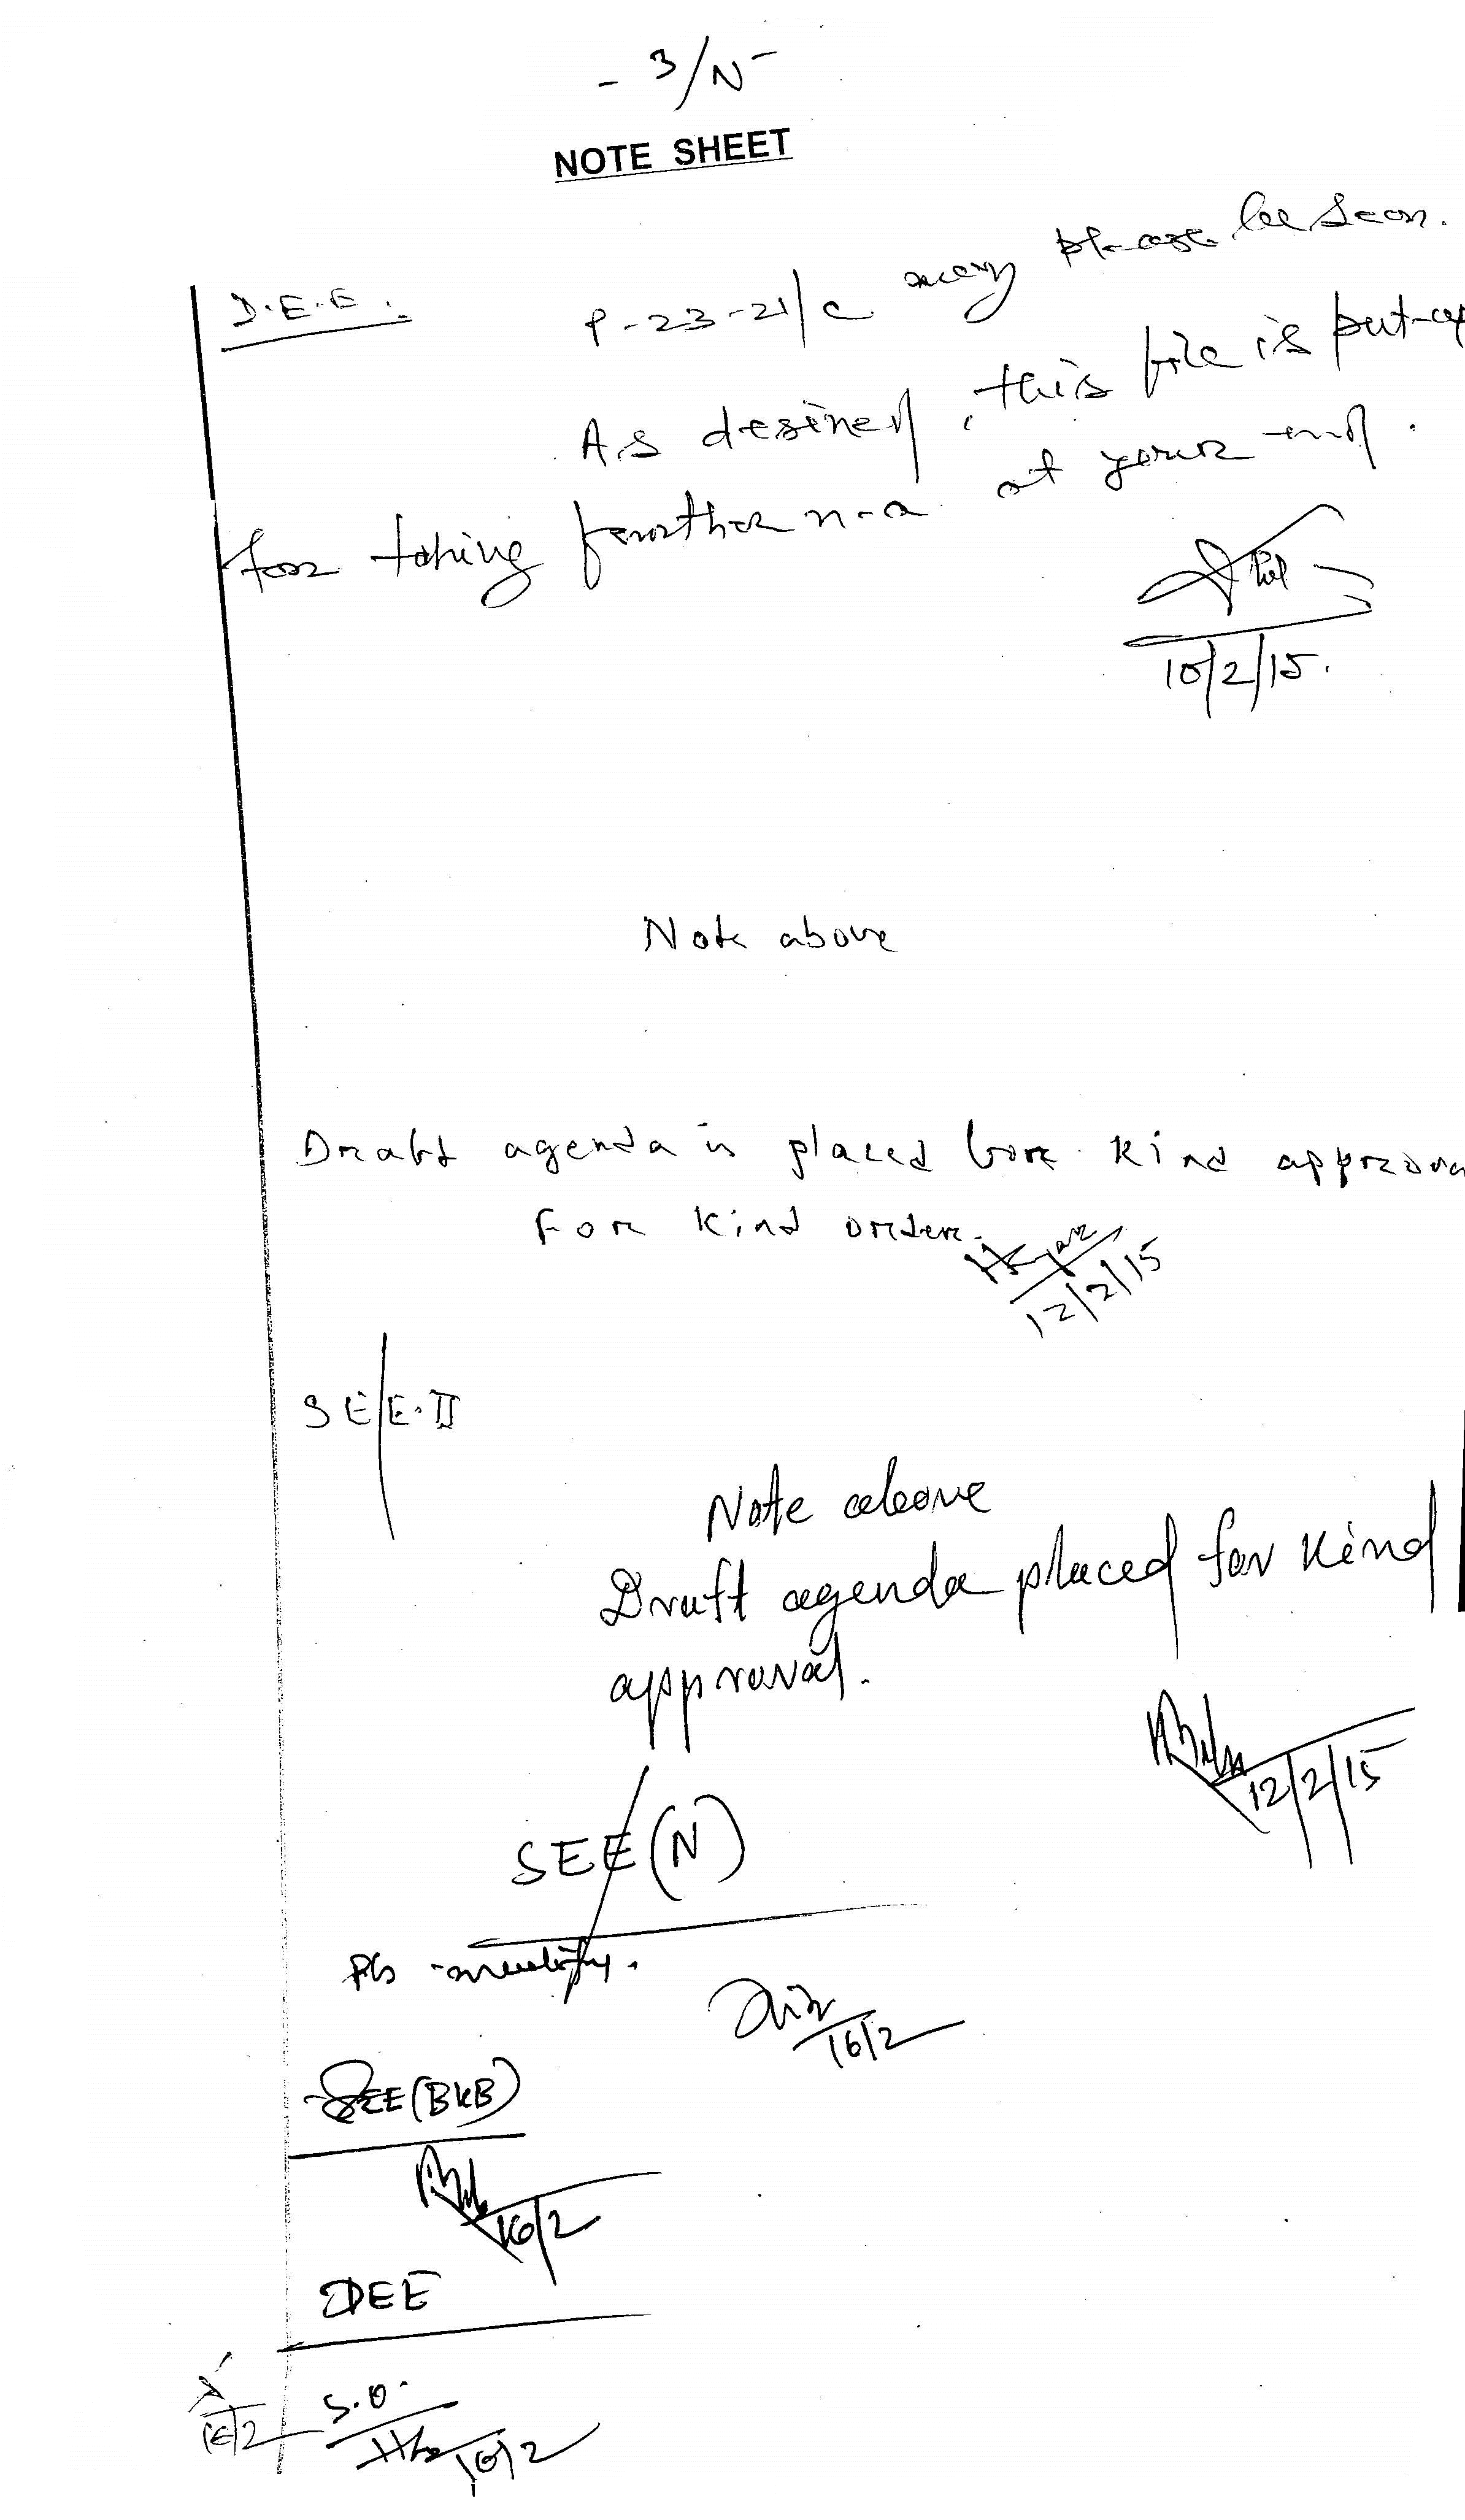 - 3/N -
NOTE SHEET
D.E.E. :
P-23-21/c may please be seen.
As desired, this file is put-up
for taking further n-a at your end.
10/2/15.
Note above
Draft agenda is placed for kind approva
For kind order.
12/2/15
SEE.II
Note above
Draft agenda placed for kind
approval.
12/2/15
SEE(N)
Pls
16/2
SEE(BKB)
16/2
DEE
16/2
S.O.
16/2